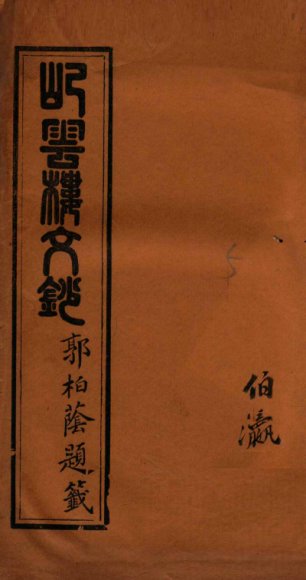 屺雲樓文鈔
郭柏蔭題籤
伯瀛